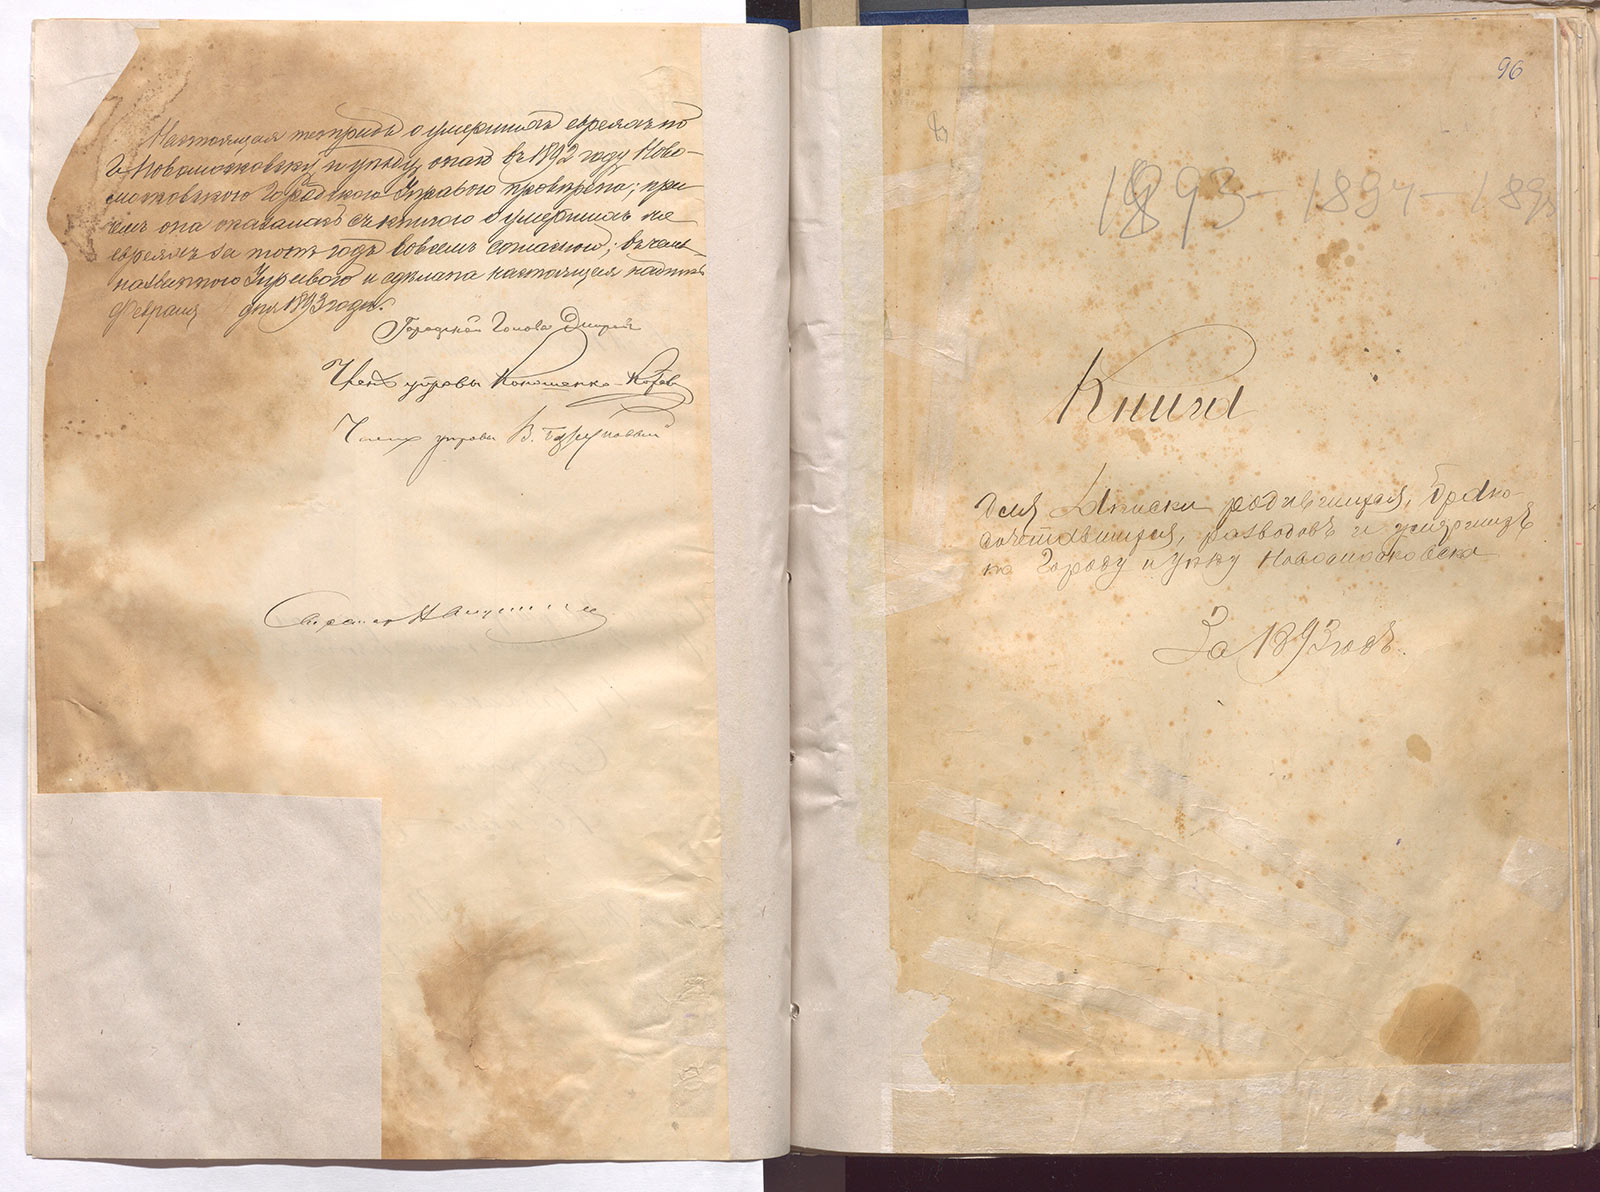 Настоящая тетрадь о умершихъ евреяхъ по
г. Новомосковску и уѣзду онаго въ 1892 году Ново-
московскою Городскою Управою провѣрена; при
чемъ она оказалась съ книгою о умершихъ же
евреяхъ за тотъ годъ вовсемъ согласною; въ чемъ
и сдѣлана настоящая надпись
Февраля дня 1893 года.
Городской Голова
Членъ управы
Членъ управы В.
Секретарь
96
1893 - 1894 - 1895
Книга
для записки родившихся, брако-
сочетавшихся, разводовъ и умершихъ
по Городу и уѣзду Новомосковска
За 1893 годъ.